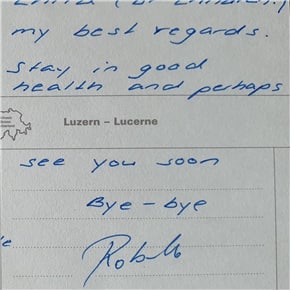 my best regards.
Stay in good
health and perhaps
Luzern – Lucerne
see you soon
Bye-bye